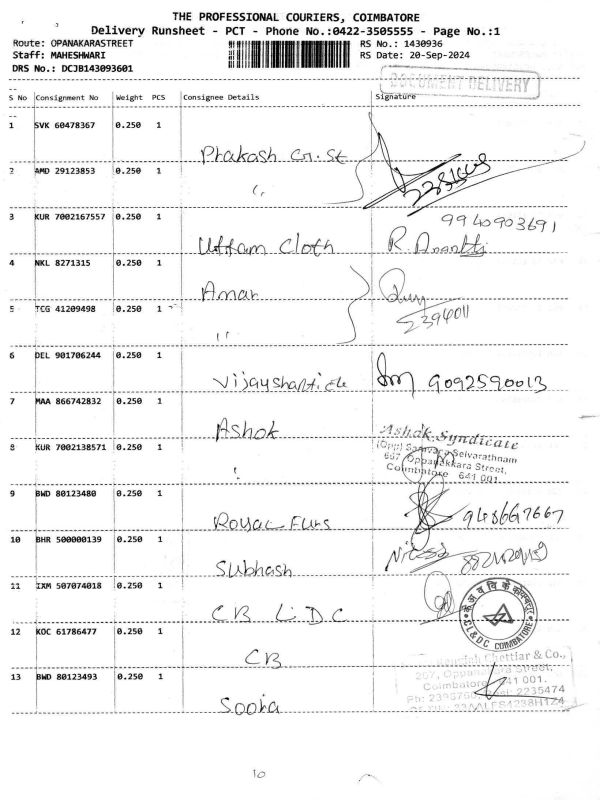 THE PROFESSIONAL COURIERS, COIMBATORE
Delivery Runsheet - PCT - Phone No.:0422-3505555 - Page No.:1
Route: OPANAKARASTREET RS No.: 1430936
Staff: MAHESHWARI RS Date: 20-Sep-2024
DRS No.: DCJB143093601
DOCUMENT DELIVERY
S No Consignment No Weight PCS Consignee Details Signature
1 SVK 60478367 0.250 1 Prakash Gr. St
2 AMD 29123853 0.250 1 "
3 KUR 7002167557 0.250 1 Uttam Cloth 9940903691
4 NKL 8271315 0.250 1 Amar
5 TCG 41209498 0.250 1 " 2394011
6 DEL 901706244 0.250 1 9092590013
7 MAA 866742832 0.250 1 Ashok Ashok Syndicate
8 KUR 7002138571 0.250 1 " (Opp) Selvarathnam
667 Oppanakkara Street,
Coimbatore 641 001.
9 BWD 80123480 0.250 1 Royal Furs
10 BHR 500000139 0.250 1 Subhash
11 IXM 507074018 0.250 1 CB L.D.C
CL&DC COIMBATORE
12 KOC 61786477 0.250 1 CB
Chettiar & Co.,
13 BWD 80123493 0.250 1 Street,
Coimbatore 641 001.
2235474
10